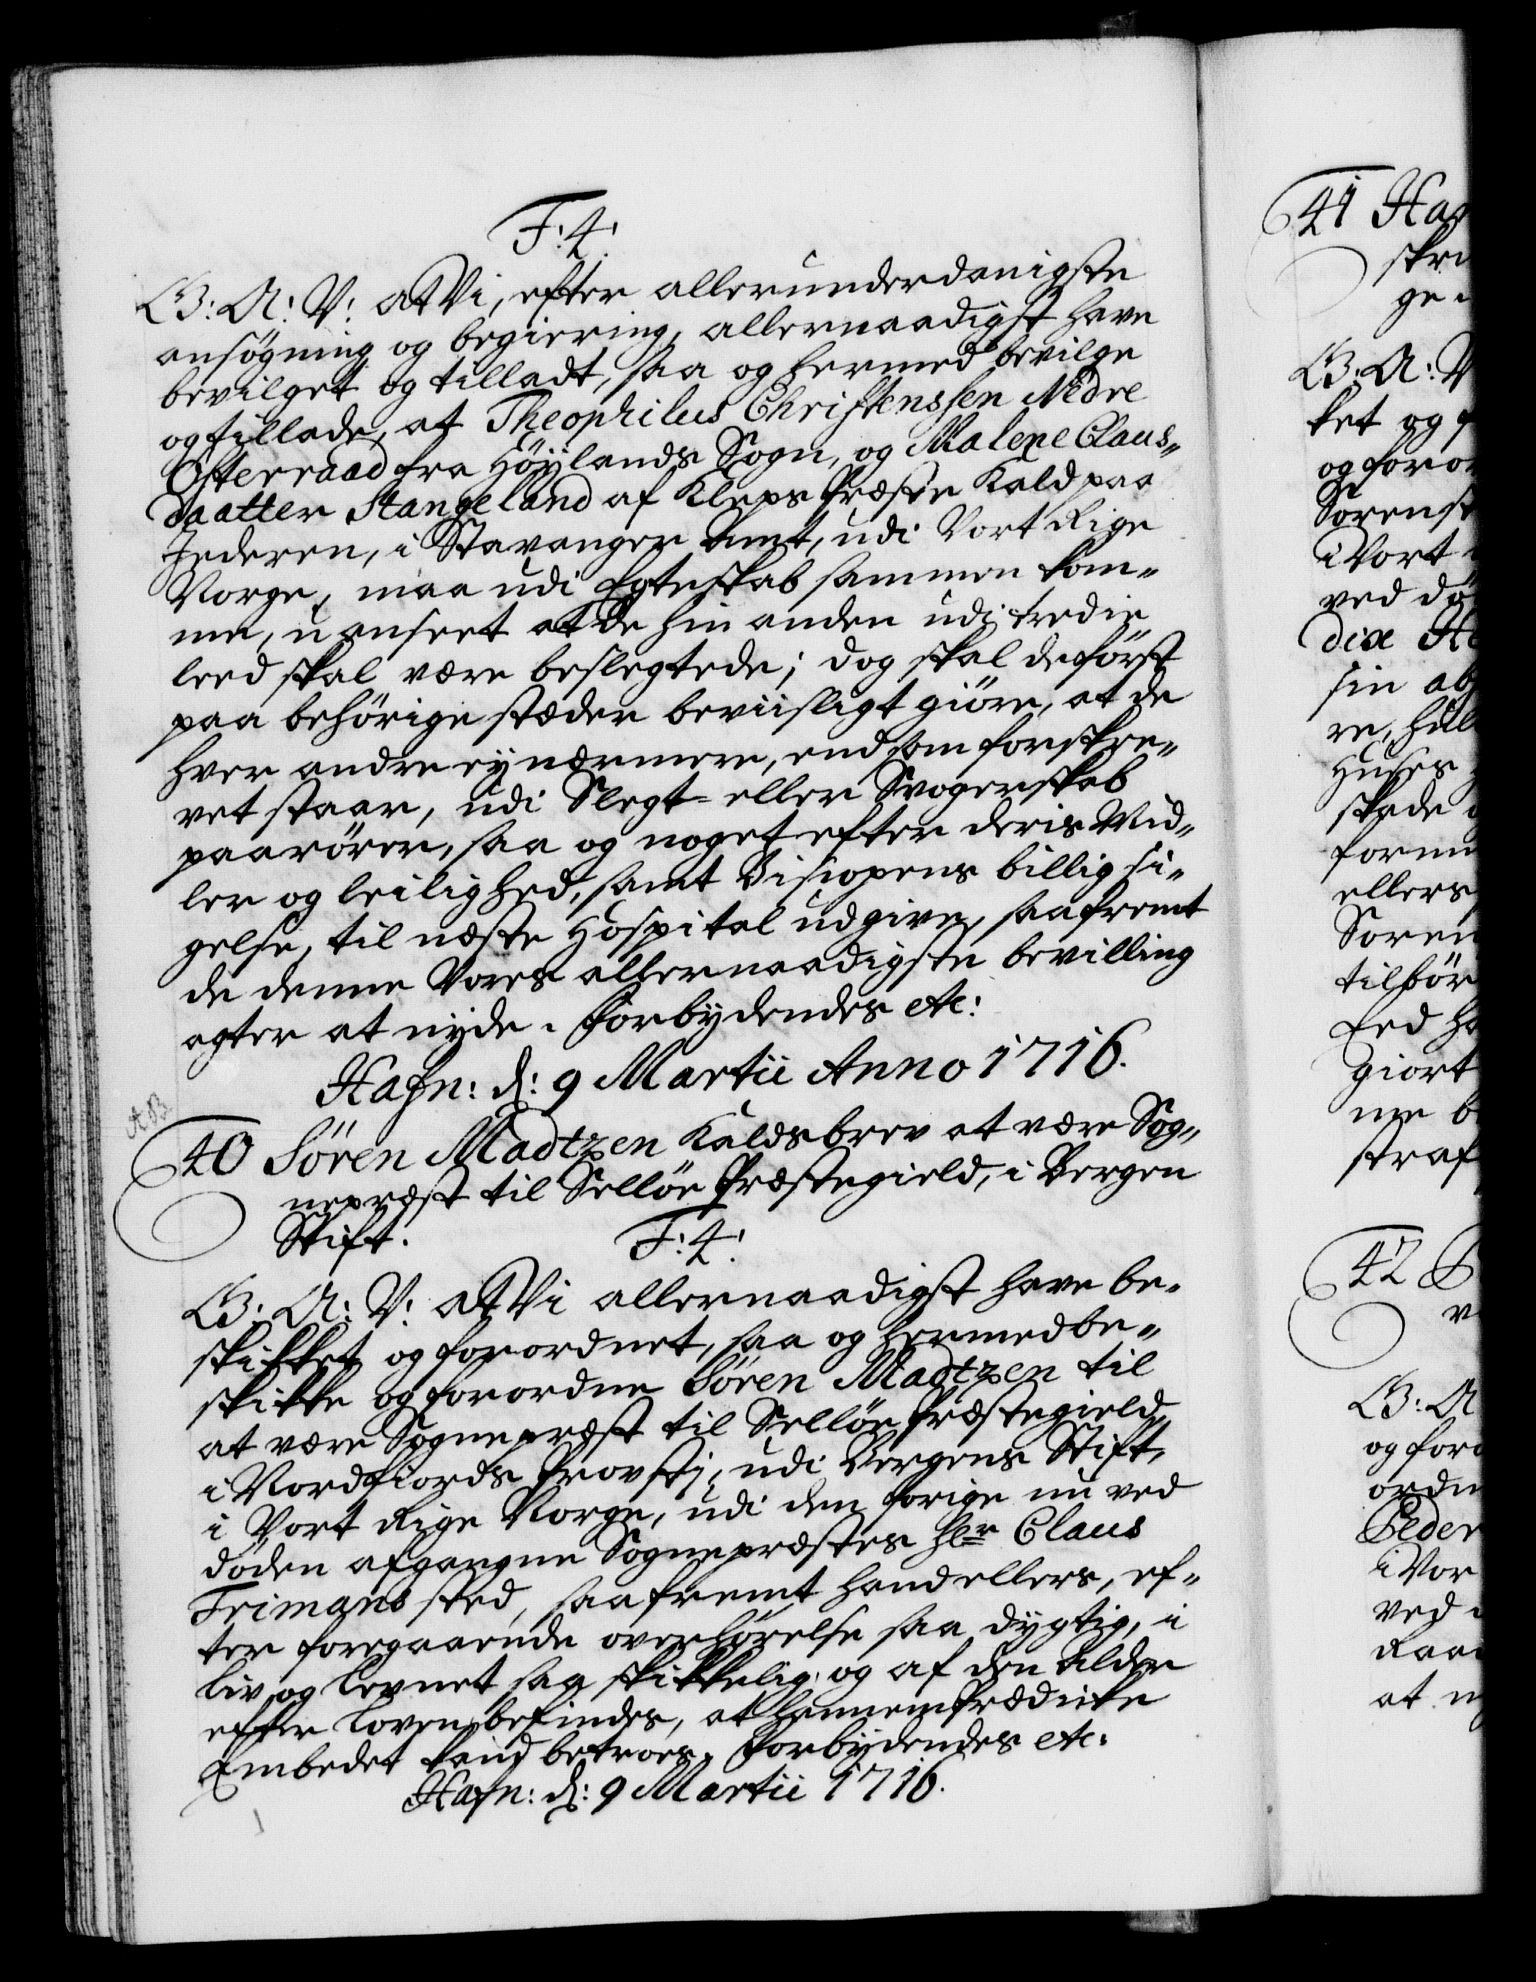 F: 4:
G: A: V: at Vi, efter allerunderdanigste
ansøgning og begiering, allernaadigst have
bevilget og tilladt, saa og hermed bevilge
og tillade, at Theophilus Christenssen Nedre
Østerraad fra Høylands Sogn, og Malene Claus„
daatter Stangeland af Kleps Præste Kald paa
Jederen, i Stavanger Amt, udi Vort Rige
Norge, maa udi Egteskab sammen kom„
me, uanseet at de hin anden udi tredie
leed skal være beslegtede; dog skal de først
paa behörige stæder beviisligt giöre, at de
hver andre ey nærmere, end som forskre„
vet staar, udi Slegt- eller Svogerskab
paarörer, saa og noget efter deris Mid„
ler og leilighed, samt Bisiopens billig si„
gelse, til næste Hospital udgive, saafremt
de denne Vores allernaadigste bevilling
agter at nyde. Forbydendes etc:
Hafn: d: 9 Martii Anno 1716.
AB
40 Sören Madtzen Kaldsbrev at være Sog„
nepræst til Sellöe Præstegield, i Bergen
Stift.
F: 4:
G: A: V: at Vi allernaadigst have be„
skikket og forordnet, saa og hermed be„
skikke og forordne Sören Madtzen til
at være Sognepræst til Sellöe Præstegield
i Nordfiords Provstj, udi Bergens Stift,
i Vort Rige Norge, udi den forige nu ved
döden afgangne Sognepræstes Hr Claus
Frimans sted, saafremt hand ellers, ef„
ter foregaaende overhörelse saa dygtig, i
Liv og Levnet saa skikkelig, og af den Alder
efter Loven befindes, at hannem Prædicke
Embedet kand betroes. Forbydendes etc:
Hafn: d: 9 Martii 1716.
41 Han
skre
ge
G: A: V
ket og f
og foror
Sörenst
i Vort
ved dö
diæ H
sin ab
re, hul
Huses
skade
formu
ellers
Sören
tilbör
Eed h
giort
me b
straf
42
v
G: A
og for
ordn
Peder
i Vor
ved
Raa
at n